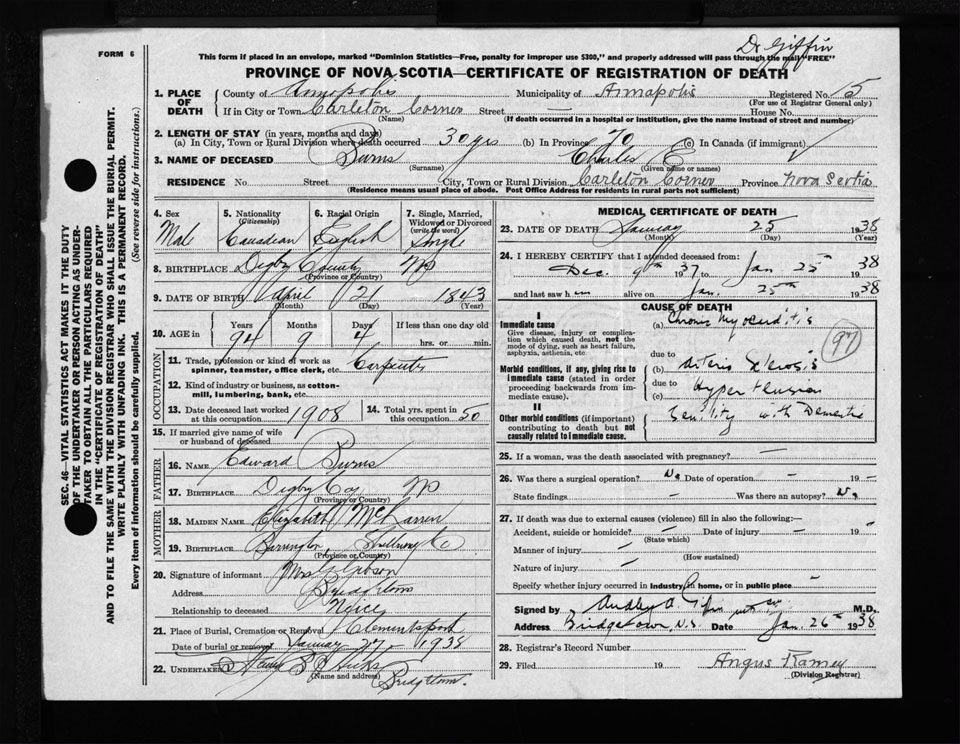 FORM 6
Dr Giffin
This form if placed in an envelope, marked "Dominion Statistics—Free, penalty for improper use $300," and properly addressed will pass through the mail "FREE"
PROVINCE OF NOVA SCOTIA—CERTIFICATE OF REGISTRATION OF DEATH
1. PLACE OF DEATH County of Annapolis Municipality of Annapolis Registered No. 15
(For use of Registrar General only)
If in City or Town Carleton Corner Street — House No.
(Name) (If death occurred in a hospital or institution, give the name instead of street and number)
2. LENGTH OF STAY (in years, months and days)
(a) In City, Town or Rural Division where death occurred 30 yrs (b) In Province 70 (c) In Canada (if immigrant)
3. NAME OF DECEASED Burns Charles E
(Surname) (Given name or names)
RESIDENCE No. Street City, Town or Rural Division Carleton Corner Province Nova Scotia
(Residence means usual place of abode. Post Office Address for residents in rural parts not sufficient)
SEC. 46—VITAL STATISTICS ACT MAKES IT THE DUTY
OF THE UNDERTAKER OR PERSON ACTING AS UNDER-
TAKER TO OBTAIN ALL THE PARTICULARS REQUIRED
IN THE "CERTIFICATE OF REGISTRATION OF DEATH"
AND TO FILE THE SAME WITH THE DIVISION REGISTRAR WHO SHALL ISSUE THE BURIAL PERMIT.
WRITE PLAINLY WITH UNFADING INK. THIS IS A PERMANENT RECORD.
Every item of information should be carefully supplied. (See reverse side for instructions.)
4. Sex 5. Nationality (Citizenship) 6. Racial Origin 7. Single, Married, Widowed or Divorced (write the word)
Male Canadian English Single
8. BIRTHPLACE Digby County NS
(Province or Country)
9. DATE OF BIRTH April 21 1843
(Month) (Day) (Year)
10. AGE in Years Months Days If less than one day old
94 9 4 hrs. or min.
OCCUPATION
11. Trade, profession or kind of work as spinner, teamster, office clerk, etc. Carpenter
12. Kind of industry or business, as cotton-mill, lumbering, bank, etc.
13. Date deceased last worked at this occupation 1908 14. Total yrs. spent in this occupation 50
15. If married give name of wife or husband of deceased
FATHER
16. NAME Edward Burns
17. BIRTHPLACE Digby Co, NS
(Province or Country)
MOTHER
18. MAIDEN NAME Elizabeth McLarren
19. BIRTHPLACE Barrington, Shelburne Co
(Province or Country)
20. Signature of informant Mrs G Gibson
Address Bridgetown
Relationship to deceased Niece
21. Place of Burial, Cremation or Removal Clementsport
Date of burial or removal January 27 1938
22. UNDERTAKER Hicks
(Name and address) Bridgetown
MEDICAL CERTIFICATE OF DEATH
23. DATE OF DEATH January 25 1938
(Month) (Day) (Year)
24. I HEREBY CERTIFY that I attended deceased from:
Dec. 9th 1937 to Jan 25th 1938
and last saw him alive on Jan. 25th 1938
CAUSE OF DEATH
I
Immediate cause (a) Chronic Myocarditis
Give disease, injury or complication which caused death, not the mode of dying, such as heart failure, asphyxia, asthenia, etc
97
due to
Morbid conditions, if any, giving rise to immediate cause (stated in order proceeding backwards from immediate cause). (b) Arterio Sclerosis
due to
(c) Hypertension
II
Other morbid conditions (if important) contributing to death but not causally related to immediate cause. Senility with Dementia
25. If a woman, was the death associated with pregnancy? —
26. Was there a surgical operation? No Date of operation — 19 —
State findings — Was there an autopsy? No
27. If death was due to external causes (violence) fill in also the following:—
Accident, suicide or homicide? — Date of injury — 19 —
(State which)
Manner of injury —
(How sustained)
Nature of injury —
Specify whether injury occurred in industry, in home, or in public place —
Signed by Audley A. Giffin M.D.
Address Bridgetown, N.S. Date Jan. 26th 1938
28. Registrar's Record Number
29. Filed 19 Angus Ramey
(Division Registrar)